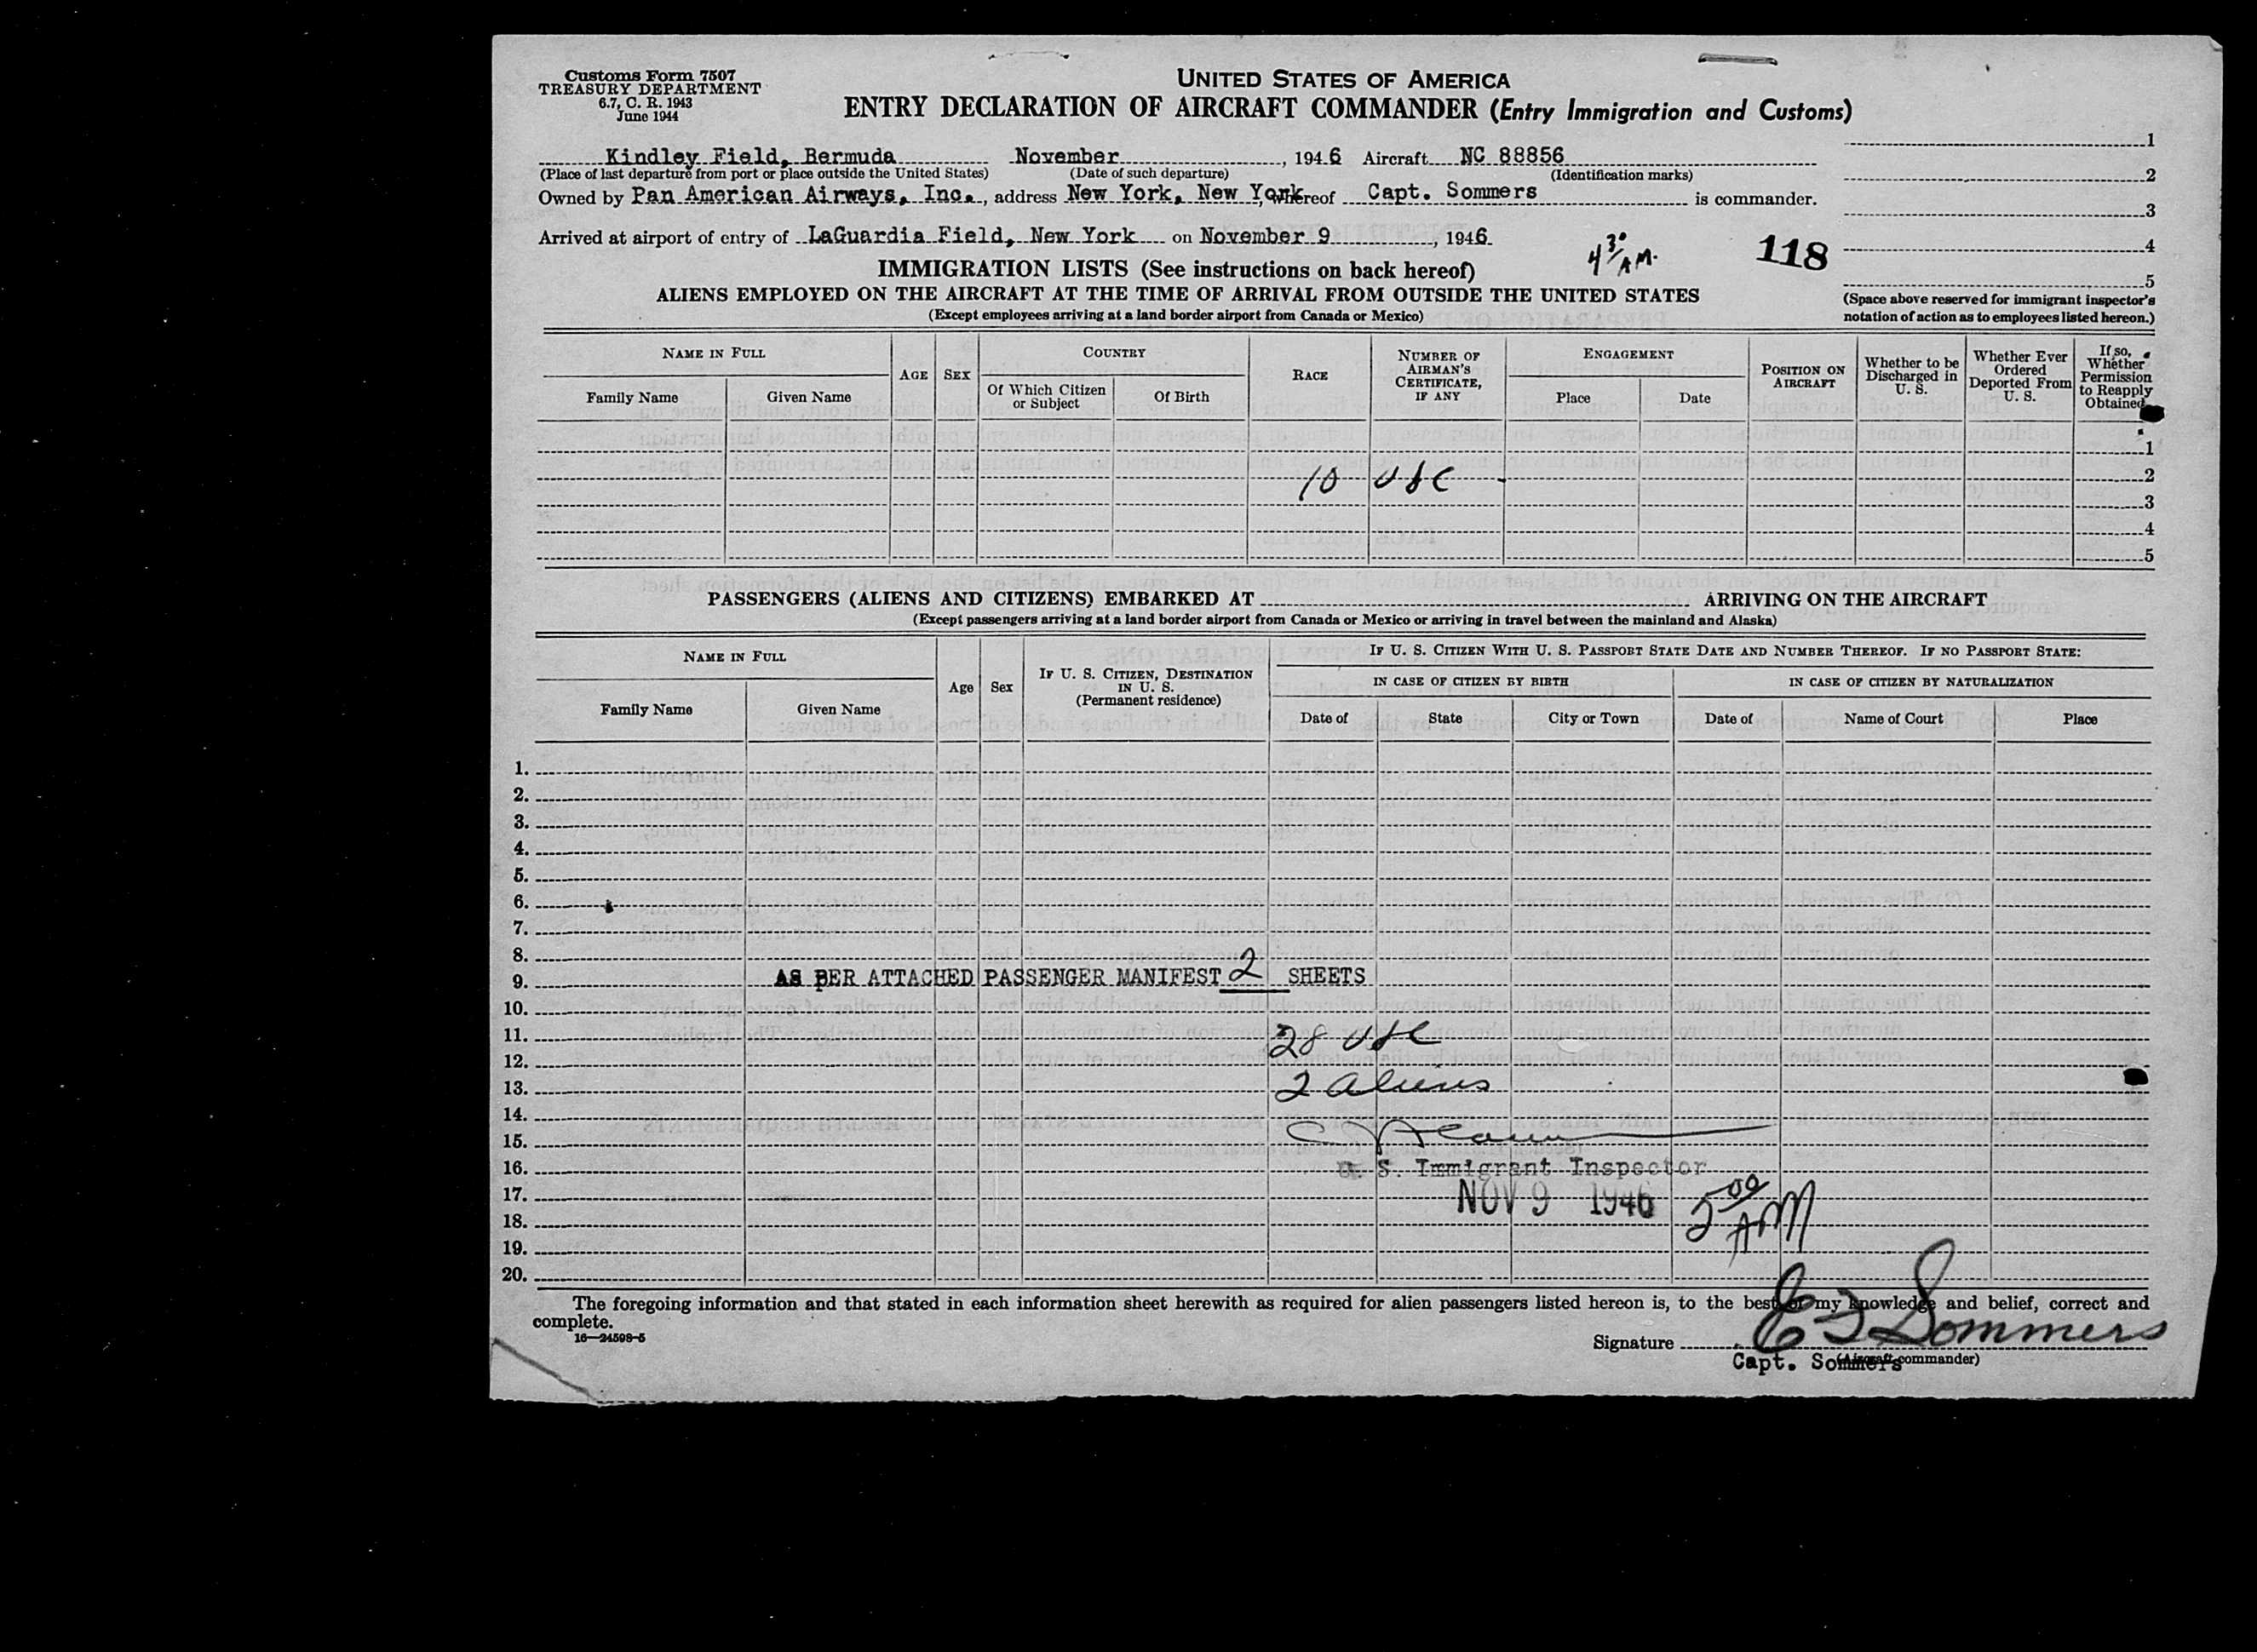 Customs Form 7507
TREASURY DEPARTMENT
6.7, C. R. 1943
June 1944
UNITED STATES OF AMERICA
ENTRY DECLARATION OF AIRCRAFT COMMANDER (Entry Immigration and Customs)
Kindley Field, Bermuda November , 1946 Aircraft NC 88856
(Place of last departure from port or place outside the United States) (Date of such departure) (Identification marks)
Owned by Pan American Airways, Inc. , address New York, New York , whereof Capt. Sommers is commander.
Arrived at airport of entry of LaGuardia Field, New York on November 9 , 1946
4 30 AM.
118
1
2
3
4
5
(Space above reserved for immigrant inspector's
notation of action as to employees listed hereon.)
IMMIGRATION LISTS (See instructions on back hereof)
ALIENS EMPLOYED ON THE AIRCRAFT AT THE TIME OF ARRIVAL FROM OUTSIDE THE UNITED STATES
(Except employees arriving at a land border airport from Canada or Mexico)
NAME IN FULL
Family Name Given Name
AGE SEX
COUNTRY
Of Which Citizen or Subject
Of Birth
RACE
NUMBER OF AIRMAN'S CERTIFICATE, IF ANY
ENGAGEMENT
Place Date
POSITION ON AIRCRAFT
Whether to be Discharged in U. S.
Whether Ever Ordered Deported From U. S.
If so, Whether Permission to Reapply Obtained
1
10 USC 2
3
4
5
PASSENGERS (ALIENS AND CITIZENS) EMBARKED AT ARRIVING ON THE AIRCRAFT
(Except passengers arriving at a land border airport from Canada or Mexico or arriving in travel between the mainland and Alaska)
NAME IN FULL
Family Name Given Name
Age Sex
IF U. S. CITIZEN, DESTINATION IN U. S.
(Permanent residence)
IF U. S. CITIZEN WITH U. S. PASSPORT STATE DATE AND NUMBER THEREOF. IF NO PASSPORT STATE:
IN CASE OF CITIZEN BY BIRTH IN CASE OF CITIZEN BY NATURALIZATION
Date of State City or Town Date of Name of Court Place
1.
2.
3.
4.
5.
6.
7.
8.
9. AS PER ATTACHED PASSENGER MANIFEST 2 SHEETS
10.
11. 28 USC
12.
13. 2 Aliens
14.
15.
16. U. S. Immigrant Inspector
17. NOV 9 1946 5 00 AM
18.
19.
20.
The foregoing information and that stated in each information sheet herewith as required for alien passengers listed hereon is, to the best of my knowledge and belief, correct and
complete.
16—24598-5
Signature Sommers
Capt. Sommers (Aircraft commander)